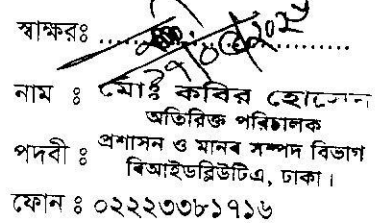 স্বাক্ষরঃ
নাম ঃ মোঃ কবির হোসেন
অতিরিক্ত পরিচালক
পদবী ঃ প্রশাসন ও মানব সম্পদ বিভাগ
বিআইডব্লিউটিএ, ঢাকা।
ফোন ঃ ০২২২৩৩৮১৭১৬